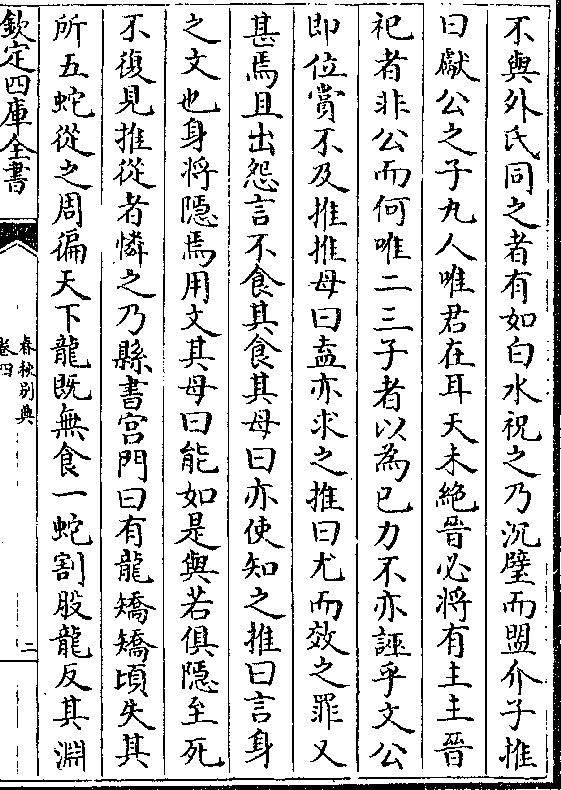 不與外氏同之者有如白水祝之乃沉璧而盟介子推
曰獻公之子九人唯君在耳天未絶晉必將有主主晉
祀者非公而何唯二三子者以為已力不亦誣乎文公
即位賞不及推推母曰盍亦求之推曰尤而效之罪又
甚焉且出怨言不食其食其母曰亦使知之推曰言身
之文也身將隱焉用文其母曰能如是與若俱隱至死
不復見推從者憐之乃縣書宫門曰有龍矯矯頃失其
所五蛇從之周徧天下龍既無食一蛇割股龍反其淵
欽定四庫全書
春秋别典
卷四
二